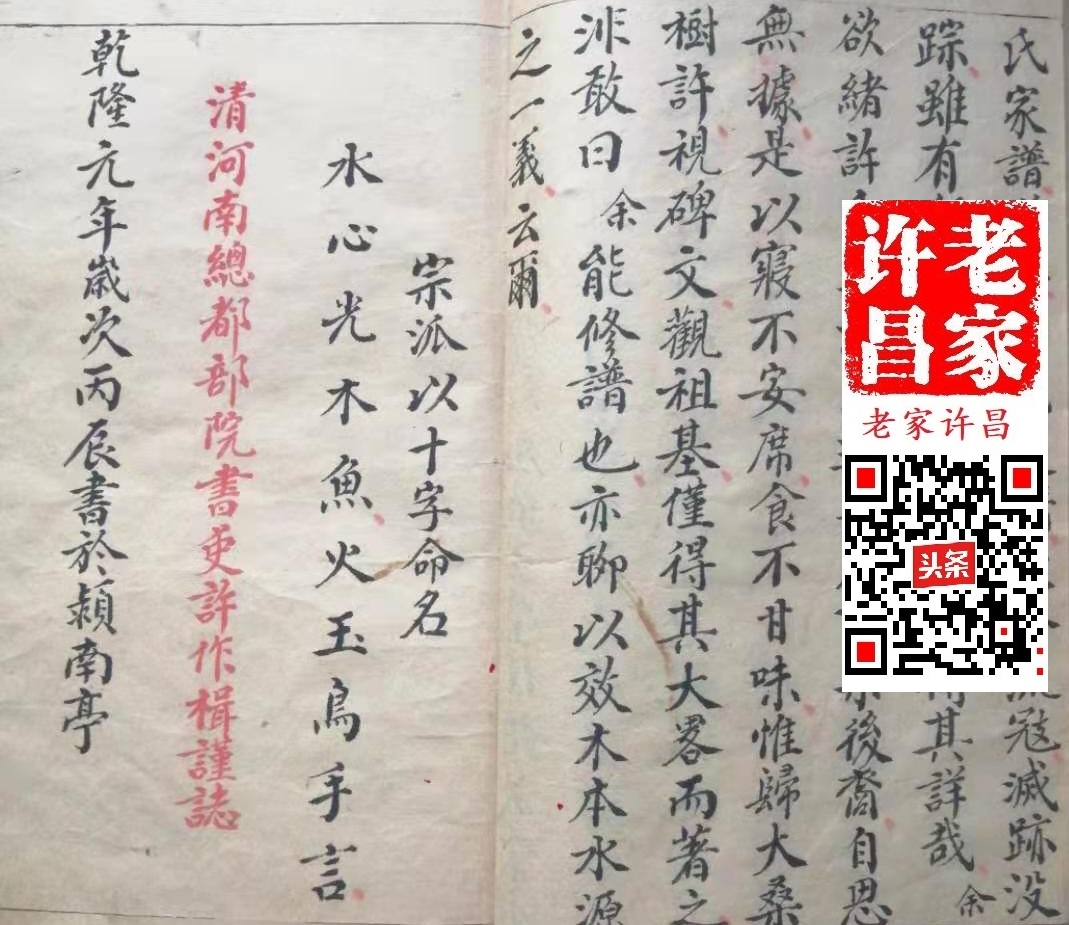 氏家譜寇滅跡没
踪雖有其詳哉余
欲緒許後裔自思
無據是以寢不安席食不甘味惟歸大桑
樹許視碑文觀祖基僅得其大畧而著之
非敢曰余能修譜也亦聊以效木本水源
之一義云爾
宗派以十字命名
水心光木魚火玉鳥手言
清河南總都部院書吏許作楫謹誌
乾隆元年歲次丙辰書於潁南亭
老家许昌
老家许昌
头条